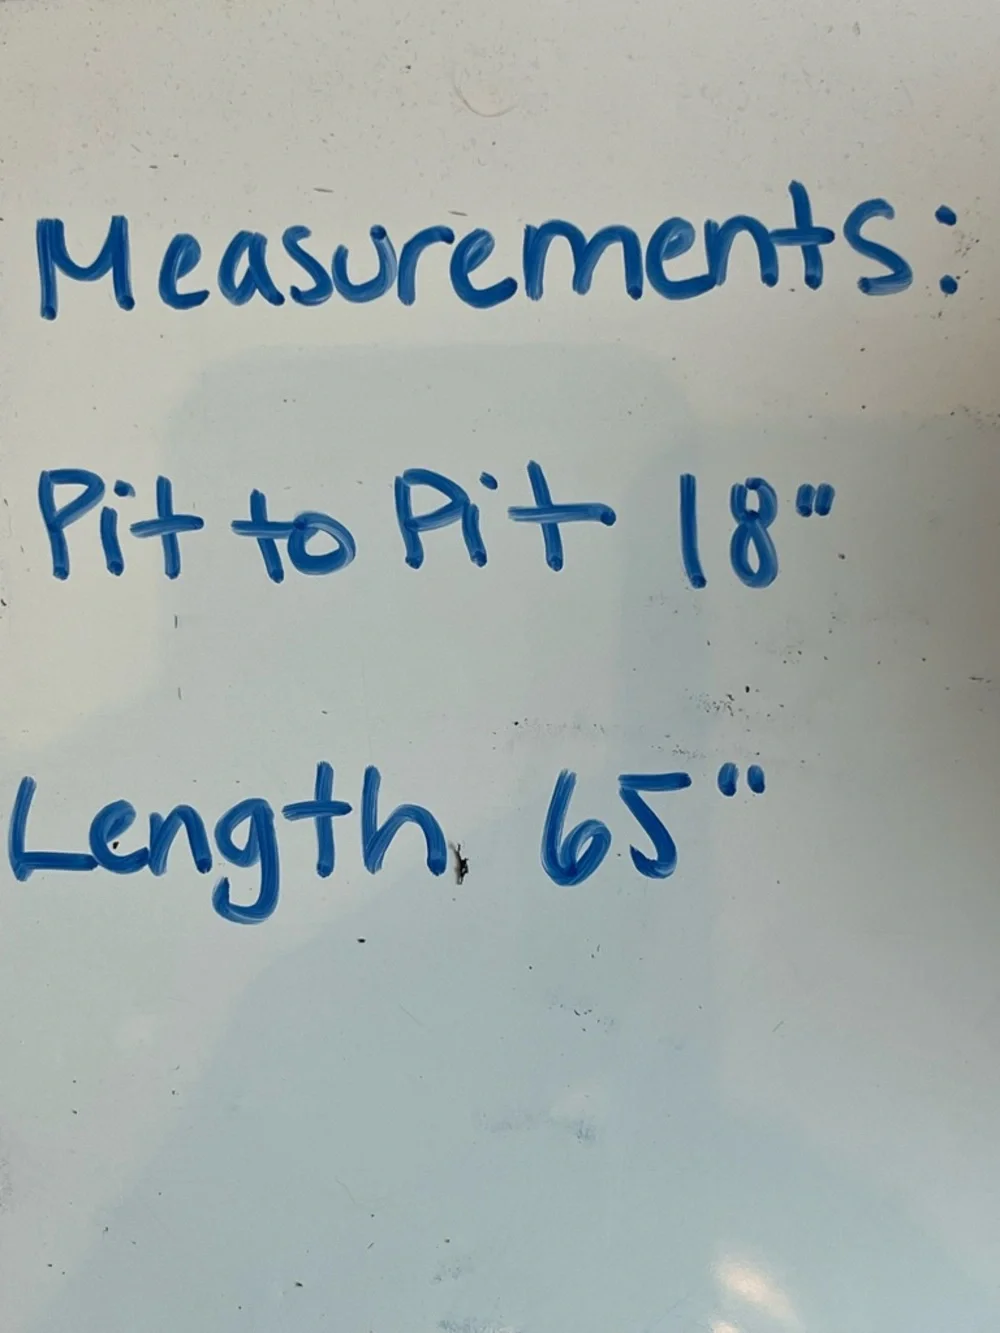 Measurements:
Pit to Pit 18"
Length 65"